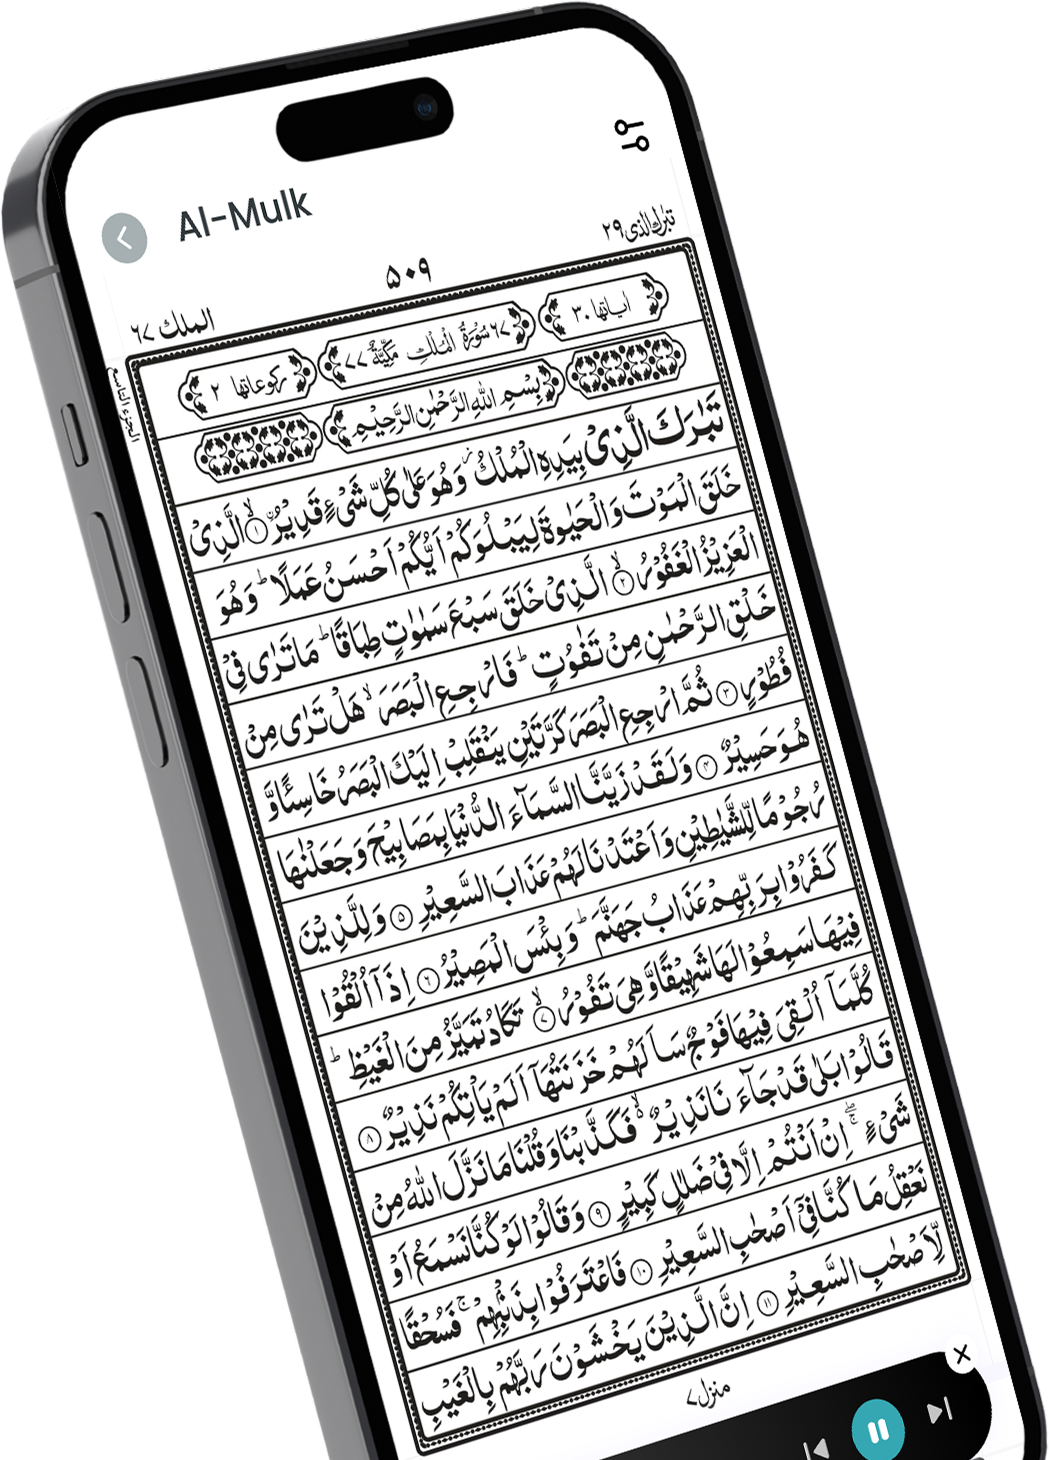 Al-Mulk
تبٰرك الذی ۲۹
۵۰۹
الملك ٦۷
اٰیاتها ۳۰
٦۷ سُوْرَةُ الْمُلْكِ مَكِّیَّةٌ ۷۷
ركوعاتها ۲
بِسْمِ اللّٰهِ الرَّحْمٰنِ الرَّحِیْمِ
الجزء التاسع
تَبٰرَكَ الَّذِیْ بِیَدِهِ الْمُلْكُ ؗ وَهُوَ عَلٰی كُلِّ شَیْءٍ قَدِیْرُۨ ۙ﴿۱﴾ الَّذِیْ
خَلَقَ الْمَوْتَ وَالْحَیٰوةَ لِیَبْلُوَكُمْ اَیُّكُمْ اَحْسَنُ عَمَلًا ؕ وَهُوَ
الْعَزِیْزُ الْغَفُوْرُ ۙ﴿۲﴾ الَّذِیْ خَلَقَ سَبْعَ سَمٰوٰتٍ طِبَاقًا ؕ مَا تَرٰی فِیْ
خَلْقِ الرَّحْمٰنِ مِنْ تَفٰوُتٍ ؕ فَارْجِعِ الْبَصَرَ ۙ هَلْ تَرٰی مِنْ
فُطُوْرٍ ﴿۳﴾ ثُمَّ ارْجِعِ الْبَصَرَ كَرَّتَیْنِ یَنْقَلِبْ اِلَیْكَ الْبَصَرُ خَاسِئًا وَّ
هُوَ حَسِیْرٌ ﴿۴﴾ وَلَقَدْ زَیَّنَّا السَّمَآءَ الدُّنْیَا بِمَصَابِیْحَ وَجَعَلْنٰهَا
رُجُوْمًا لِّلشَّیٰطِیْنِ وَاَعْتَدْنَا لَهُمْ عَذَابَ السَّعِیْرِ ﴿۵﴾ وَلِلَّذِیْنَ
كَفَرُوْا بِرَبِّهِمْ عَذَابُ جَهَنَّمَ ؕ وَبِئْسَ الْمَصِیْرُ ﴿٦﴾ اِذَاۤ اُلْقُوْا
فِیْهَا سَمِعُوْا لَهَا شَهِیْقًا وَّهِیَ تَفُوْرُ ۙ﴿۷﴾ تَكَادُ تَمَیَّزُ مِنَ الْغَیْظِ ؕ
كُلَّمَاۤ اُلْقِیَ فِیْهَا فَوْجٌ سَاَلَهُمْ خَزَنَتُهَاۤ اَلَمْ یَاْتِكُمْ نَذِیْرٌ ﴿۸﴾
قَالُوْا بَلٰی قَدْ جَآءَنَا نَذِیْرٌ ۙ۬ فَكَذَّبْنَا وَقُلْنَا مَا نَزَّلَ اللّٰهُ مِنْ
شَیْءٍ ۖۚ اِنْ اَنْتُمْ اِلَّا فِیْ ضَلٰلٍ كَبِیْرٍ ﴿۹﴾ وَقَالُوْا لَوْ كُنَّا نَسْمَعُ اَوْ
نَعْقِلُ مَا كُنَّا فِیْۤ اَصْحٰبِ السَّعِیْرِ ﴿۱۰﴾ فَاعْتَرَفُوْا بِذَنْۢبِهِمْ ۚ فَسُحْقًا
لِّاَصْحٰبِ السَّعِیْرِ ﴿۱۱﴾ اِنَّ الَّذِیْنَ یَخْشَوْنَ رَبَّهُمْ بِالْغَیْبِ
منزل۷